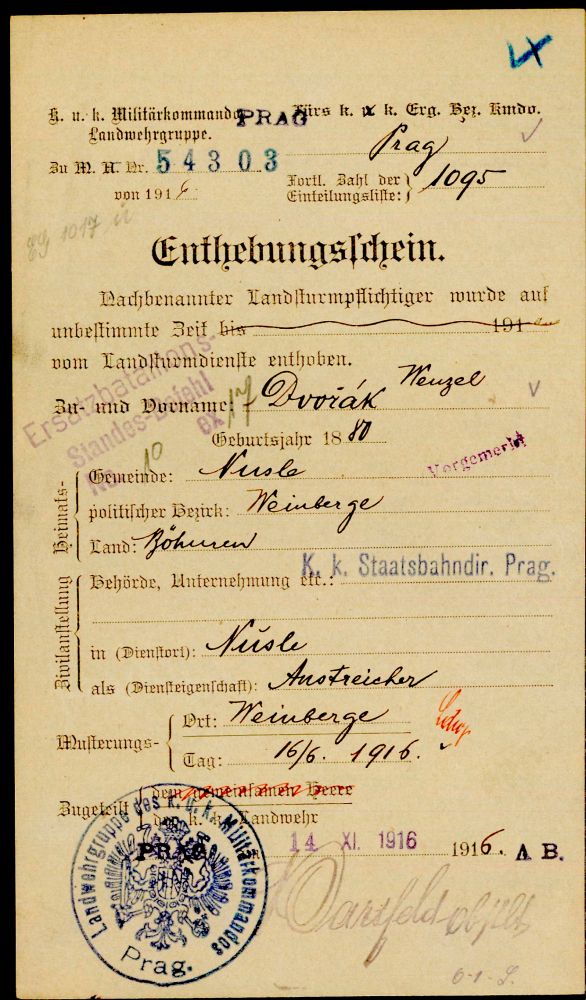 K. u. k. Militärkommando PRAG
Landwehrgruppe.
Fürs k. u. k. Erg. Bez. Kmdo.
Prag
Zu M. A. Nr. 54303
von 1916
Fortl. Zahl der Einteilungsliste: 1095
EG 1017
Enthebungsschein.
Nachbenannter Landsturmpflichtiger wurde auf
unbestimmte Zeit bis 191
vom Landsturmdienste enthoben.
Ersatzbataillons-
Standes-Befehl
No 10 ex 17
Zu- und Vorname: Dvořák Wenzel
Geburtsjahr 1880
Vorgemerkt
Heimats-
Gemeinde: Nusle
politischer Bezirk: Weinberge
Land: Böhmen
Zivilanstellung
Behörde, Unternehmung etc.: K. k. Staatsbahndir. Prag.
in (Dienstort): Nusle
als (Diensteigenschaft): Anstreicher
Musterungs-
Ort: Weinberge
Tag: 16/6. 1916.
Zugeteilt
dem gemeinsamen Heere
der k. k. Landwehr
PRAG 14 XI. 1916 1916. A B.
Landwehrgruppe des k. u. k. Militärkommandos
Prag.